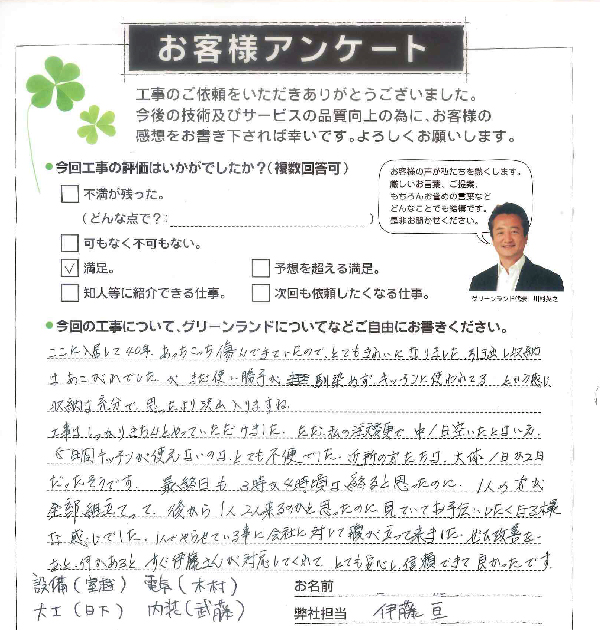 お客様アンケート
工事のご依頼をいただきありがとうございました。
今後の技術及びサービスの品質向上の為に、お客様の
感想をお書き下されば幸いです。よろしくお願いします。
今回工事の評価はいかがでしたか?(複数回答可)
不満が残った。
(どんな点で?: )
可もなく不可もない。
満足。
予想を超える満足。
知人等に紹介できる仕事。
次回も依頼したくなる仕事。
お客様の声が私たちを動くします。
厳しいお言葉、ご提案、
もちろんお誉めの言葉など
どんなことでも結構です。
是非お聞かせください。
グリーンランド代表
今回の工事について、グリーンランドについてなどご自由にお書きください。
ここに入居して40年、あっちこっち傷んできていたので、とてもきれいになりました。引出し収納
はあこがれでしたが、まだ使い勝手が馴染めず、キッチンに使われてる、という感じ
収納は充分で、思ったより沢山入りますね。
工事はしっかりきちんとやっていただけました。ただ私の注文変更で、中1日空いたとはいえ、
日間キッチンが使えないのは、とても不便でした。近所の方たちは、大体1日か2日
だったそうです。最終日も3時か4時頃は終ると思ったのに、1人の方が
全部組立てって、後から1人2人来るのかと思ったのに見ていてお手伝いしたくなる様
な感じでした。1人でやらせている事に会社に対して腹が立って来ました。改善を。
あと、何かあるとすぐ伊藤さんが対応してくれて、とても安心し信頼できて良かったです
設備(室越) 電気(木村)
大工(日下) 内装(武藤)
お名前
弊社担当 伊藤 亘